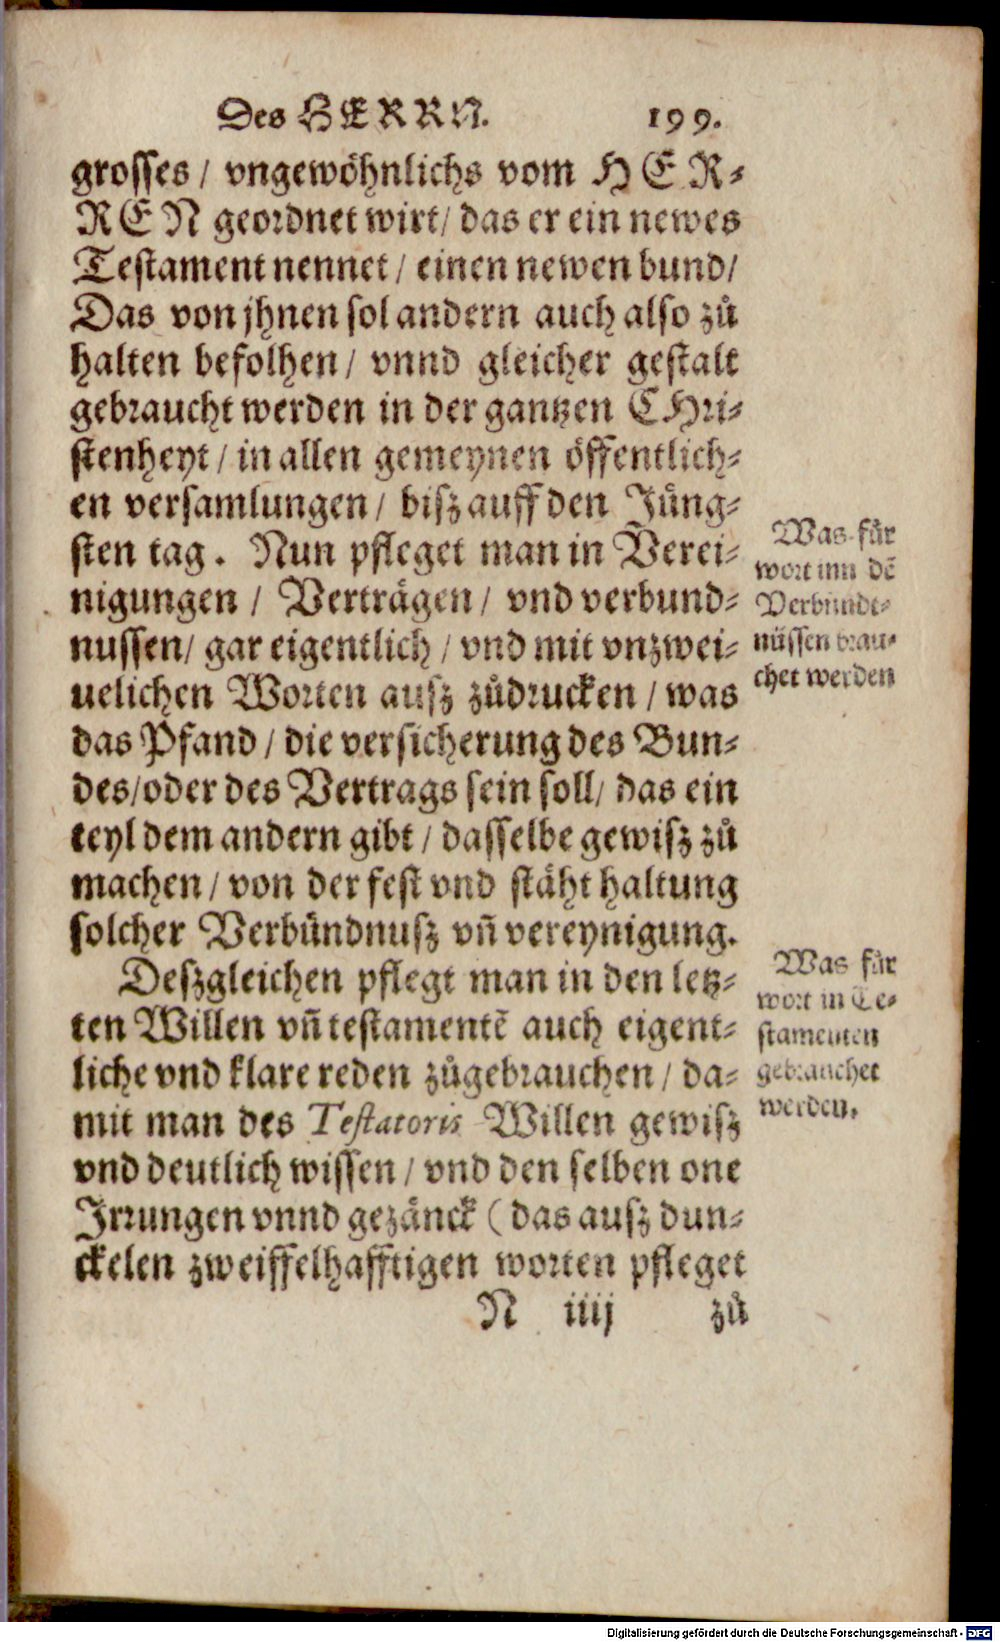 Des HERRN. 199.
grosses / vngewöhnlichs vom HER-
REN geordnet wirt / das er ein newes
Testament nennet / einen newen bund /
Das von jhnen sol andern auch also zů
halten befolhen / vnnd gleicher gestalt
gebraucht werden in der gantzen CHri-
stenheyt / in allen gemeynen öffentlich-
en versamlungen / bisz auff den Jüng-
sten tag. Nun pfleget man in Verei-
nigungen / Verträgen / vnd verbund-
nussen / gar eigentlich / vnd mit vnzwei-
uelichen Worten ausz zůdrucken / was
das Pfand / die versicherung des Bun-
des / oder des Vertrags sein soll / das ein
teyl dem andern gibt / dasselbe gewisz zů
machen / von der fest vnd stäht haltung
solcher Verbündnusz vñ vereynigung.
Deszgleichen pflegt man in den letz-
ten Willen vñ testamentẽ auch eigent-
liche vnd klare reden zůgebrauchen / da-
mit man des Testatoris Willen gewisz
vnd deutlich wissen / vnd den selben one
Irrungen vnnd gezänck ( das ausz dun-
ckelen zweiffelhafftigen worten pfleget
N iiij zů
Was für
wort inn dẽ
Verbündt-
nüssen brau-
chet werden
Was für
wort in Te-
stamenten
gebrauchet
werden.
Digitalisierung gefördert durch die Deutsche Forschungsgemeinschaft - DFG